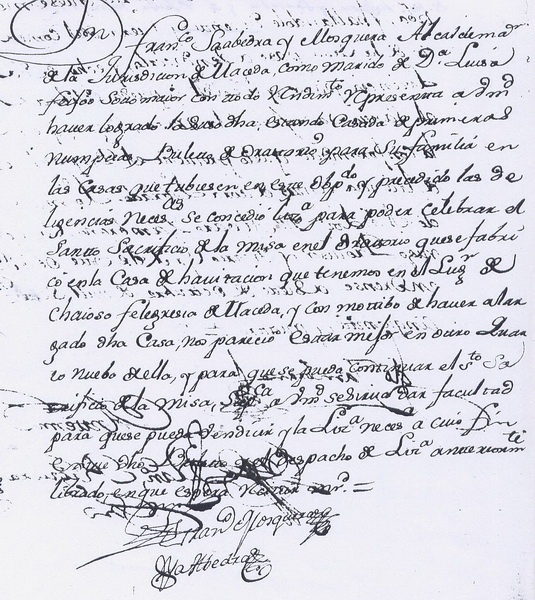 Dn. Franco Saabedra y Mosquera Alcalde mar
de la Jurisdicion de Maceda, como marido de Da. Luisa
feijoo Sotomaior con todo Rendimto Representa a Vmd
haver logrado la suso dha, estando Casada de primeras
Numpcias, Buleto de oratorio para su familia en
las Casas que tubiesen en este obpdo, y precedido las de
ligencias necesas se concedio liza para poder celebrar el
santo Sacrificio de la misa en el oratorio que se fabri
co en la Casa de havitacion que tenemos en el Lugr de
Chaioso felegresia de Maceda, y con mottibo de haver alar
gado dha Casa, nos parecio estar mejor en otro Quar
to nuebo de ella, y para que se pueda continuar el sto Sa
crificio de la Misa, Suppca a Vmd se sirva dar facultad
para que se pueda vendicir y la Liza neces a cuio fin
en que dho el despacho de Liza anteriormte
librado, en que espera Recivir mrd. =
Frando Mosquera
Saabedra